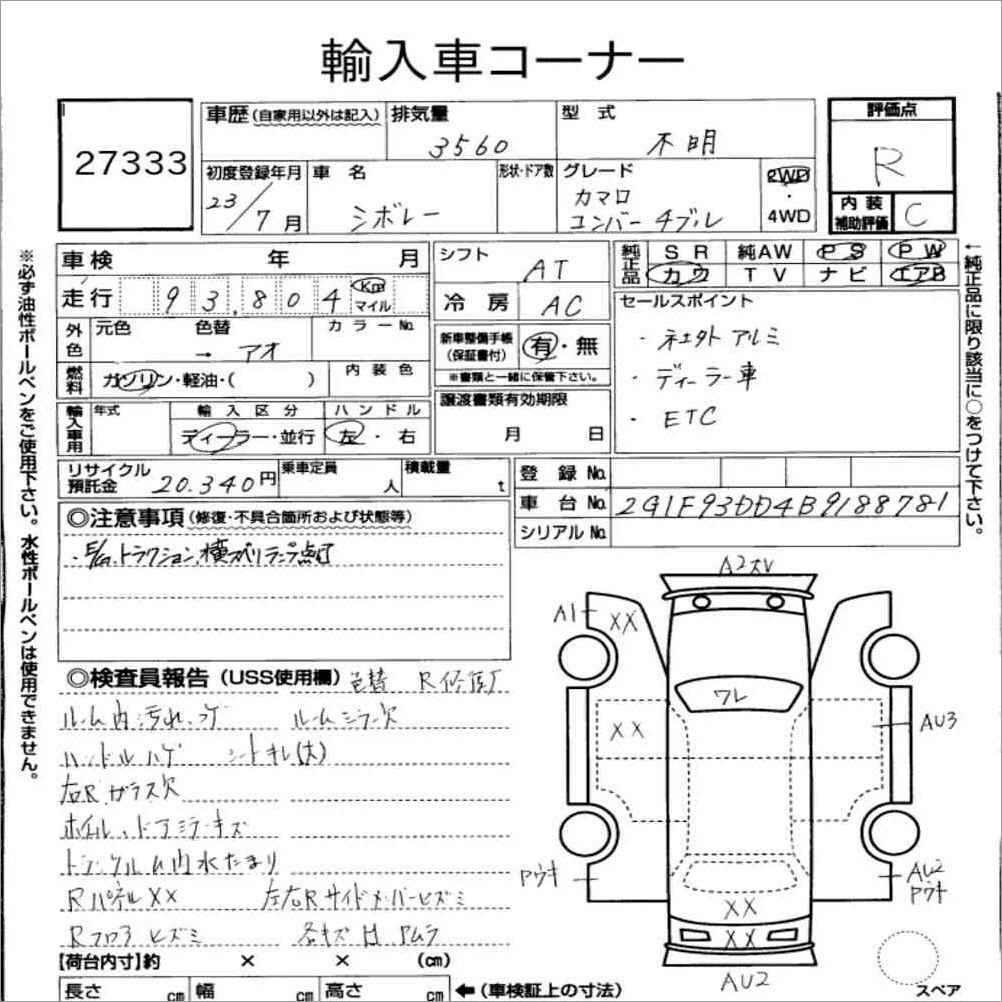 輸入車コーナー
27333
車歴(自家用以外は記入)
排気量
3560
型 式
不明
評価点
R
内装
補助評価
C
初度登録年月
23/7月
車 名
シボレー
形状・ドア数
グレード
カマロ
コンバーチブル
2WD
・
4WD
車検 年 月
走行 93,804 Km
マイル
シフト
AT
冷 房
AC
純正品
SR 純AW PS PW
カワ TV ナビ エアB
外色
元色 色替 カラーNo.
→ アオ
燃料
ガソリン・軽油・( )
内装色
新車整備手帳
(保証書付)
有・無
※書類と一緒に保管下さい。
セールスポイント
・ アルミ
・ディーラー車
・ETC
輸入車用
年式
輸入区分
ディーラー・並行
ハンドル
左・右
譲渡書類有効期限
月 日
リサイクル
預託金 20.340円
乗車定員
人
積載量
t
登録No.
車台No. 2G1F93DD4B9188781
シリアルNo.
◎注意事項(修復・不具合箇所および状態等)
・E/G.トラクション.横スベリランプ点灯
◎検査員報告(USS使用欄) 色替 R修復
ルーム内汚れ、コゲ ルームミラー欠
ハンドルハゲ シートキレ(大)
右Rガラス欠
ホイル、ドアミラーキズ
トランクルーム内水たまり
RパネルXX 左右Rサイドメンバーヒズミ
Rフロアヒズミ 各キズH Pムラ
【荷台内寸】約 × × (cm)
長さ cm 幅 cm 高さ cm
←(車検証上の寸法)
A1
XX
XX
ワレ
AU3
Pウキ
AU2
Pウキ
XX
XX
AU2
スペア
※必ず油性ボールペンをご使用下さい。水性ボールペンは使用できません。
←純正品に限り該当に○をつけて下さい。